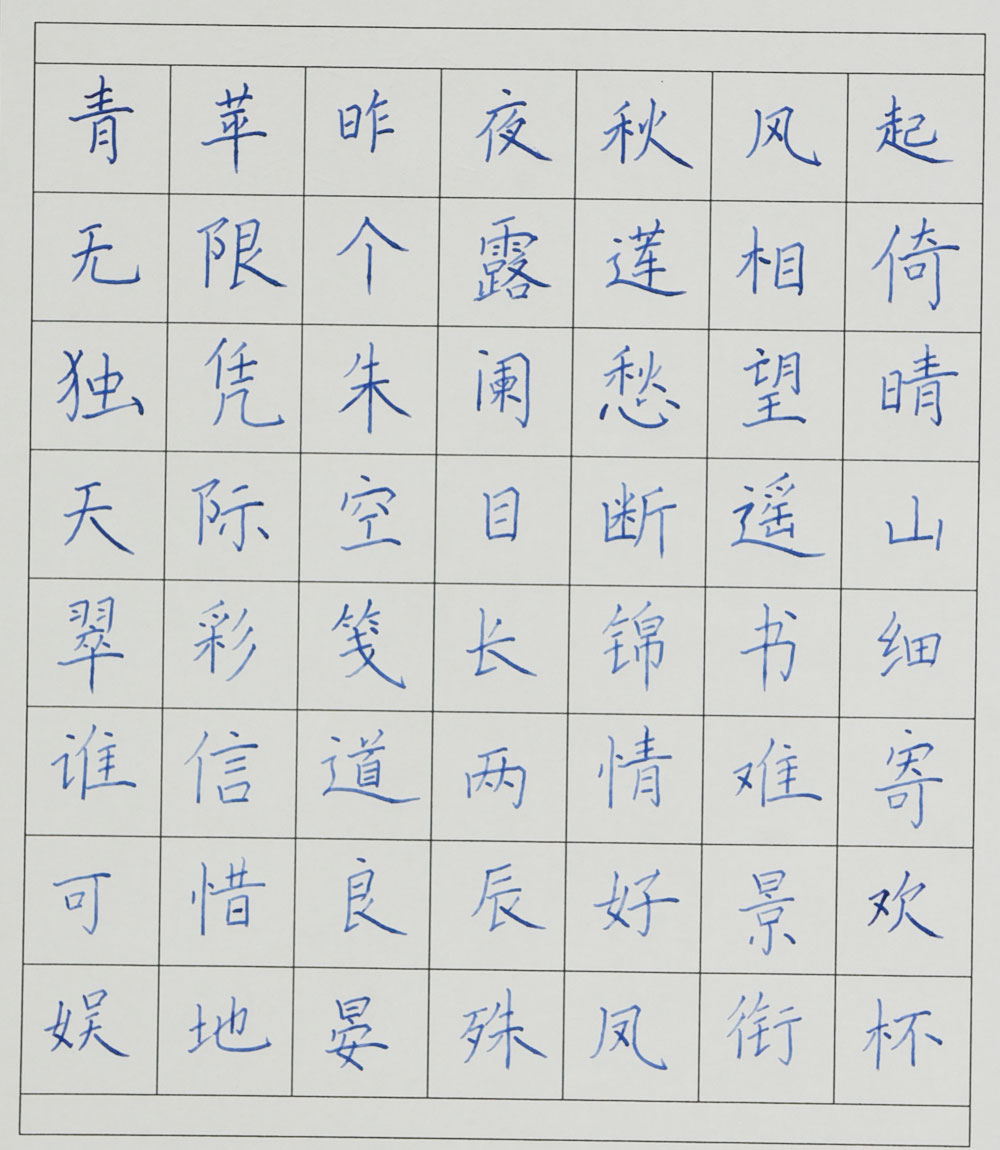 青苹昨夜秋风起
无限个露莲相倚
独凭朱阑愁望晴
天际空目断遥山
翠彩笺长锦书细
谁信道两情难寄
可惜良辰好景欢
娱地晏殊凤衔杯